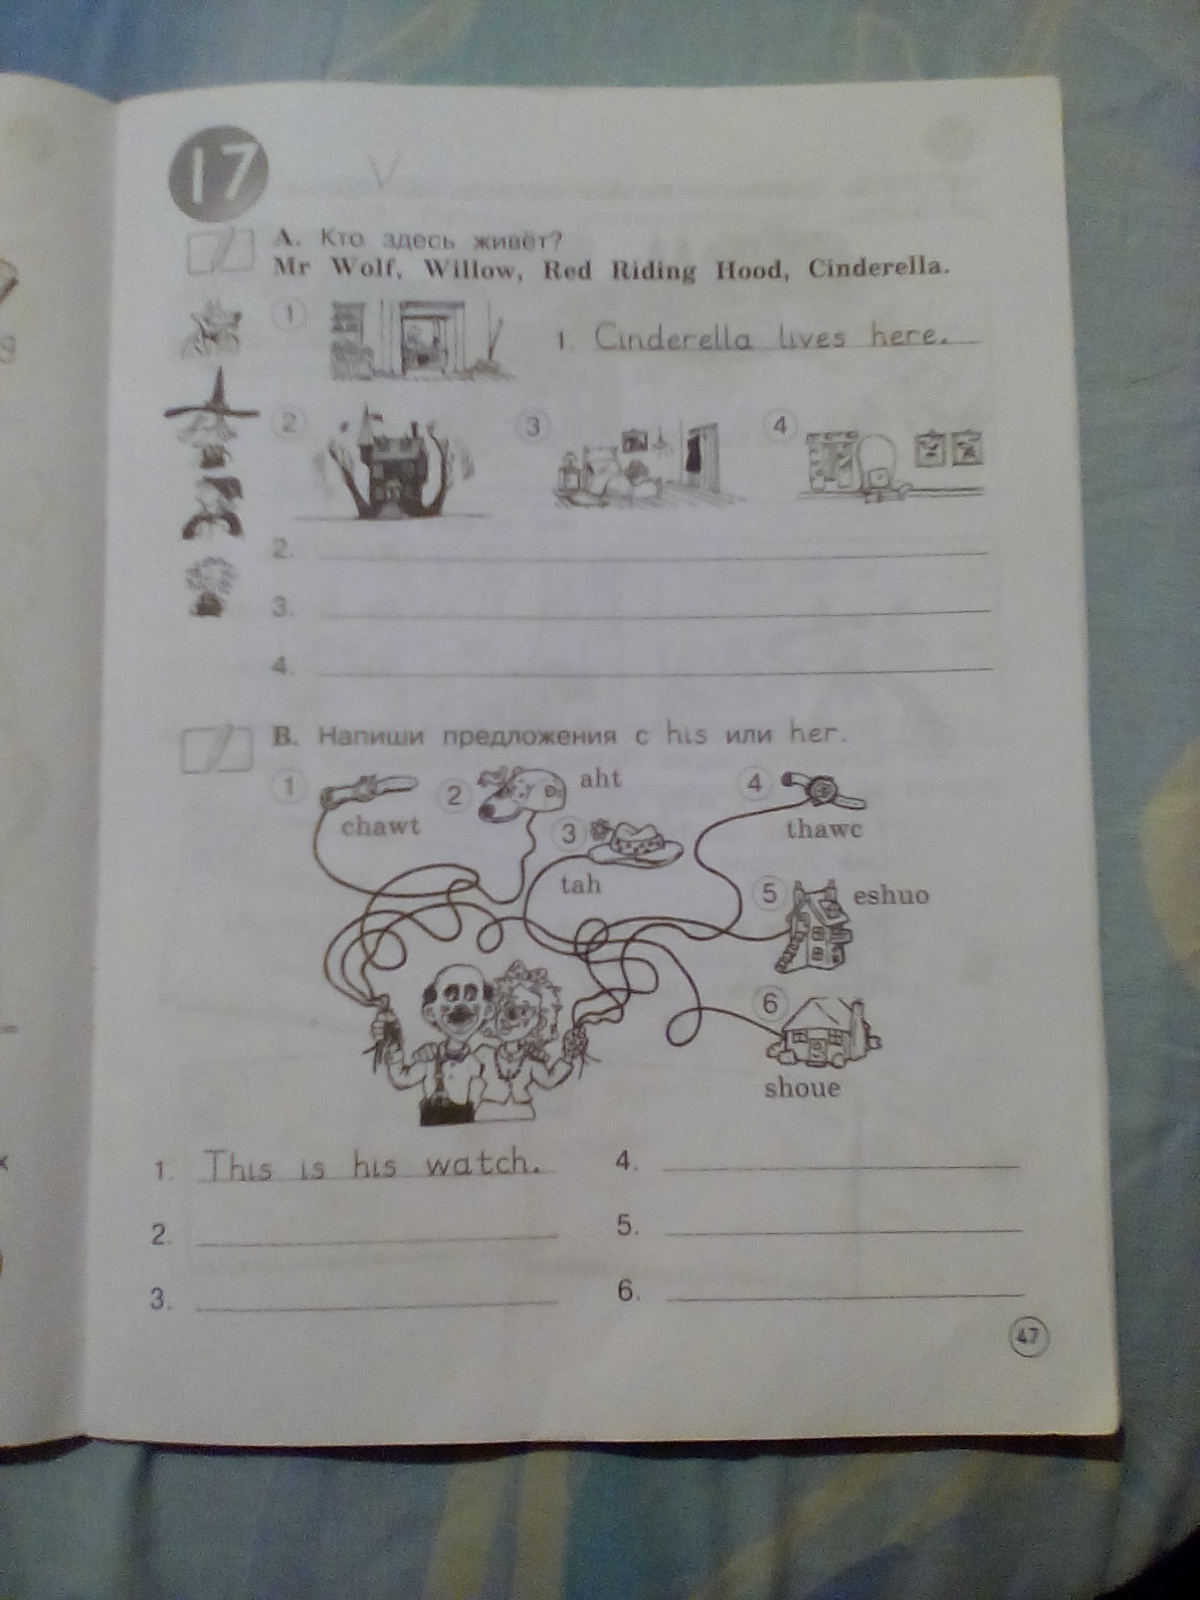 17
A. Кто здесь живёт?
Mr Wolf, Willow, Red Riding Hood, Cinderella.
1
1. Cinderella lives here.
2 3 4
2.
3.
4.
B. Напиши предложения с his или her.
1 chawt
2 aht
3 tah
4 thawc
5 eshuo
6 shoue
1. This is his watch.
2.
3.
4.
5.
6.
47